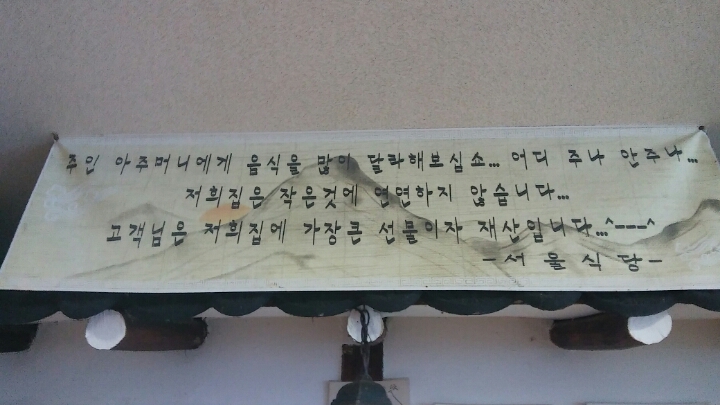 주인 아주머니에게 음식을 많이 달라해보십소... 어디 주나 안주나...
저희집은 작은것에 연연하지 않습니다...
고객님은 저희집에 가장큰 선물이자 재산입니다...^---^
-서울식당-